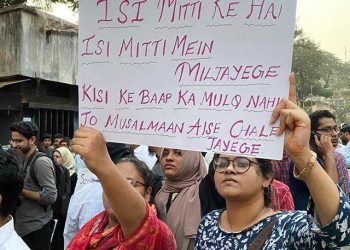 ISI MITTI KE HAI
ISI MITTI MEIN
MILJAYEGE
KISI KE BAAP KA MULQ NAHI
JO MUSALMAAN AISE CHALE
JAYEGE